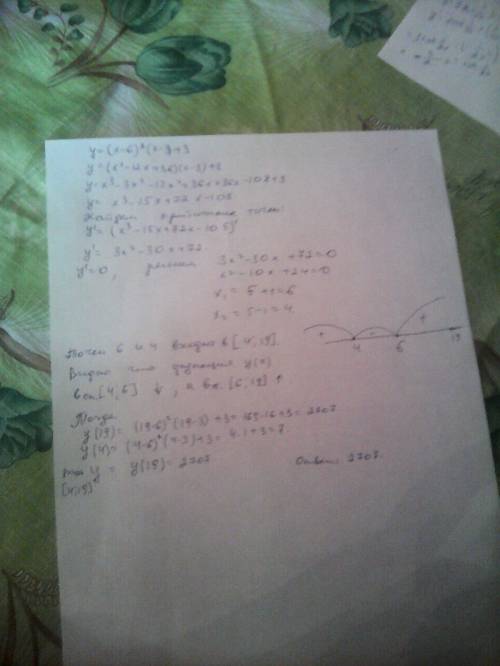 y=(x-6)²(x-3)+3
y=(x²-12x+36)(x-3)+3
y=x³-3x²-12x²+36x+36x-108+3
y= x³-15x+72x-105
Найдем критические точки:
y'=(x³-15x+72x-105)'
y'= 3x²-30x+72.
y'=0, решаем 3x²-30x+72=0
x²-10x+24=0
x₁=5+1=6
x₂=5-1=4
+ - +
4 6 19
Точки 6 и 4 входят в [4;19].
Видно что функция y(x)
[4;6] ↓, а [6;19] ↑
Тогда
y(19)=(19-6)²(19-3)+3=169·16+3=2707
y(4)=(4-6)²(4-3)+3=4·1+3=7.
y = y(19)=2707.
[4;19]
Ответ: 2707.